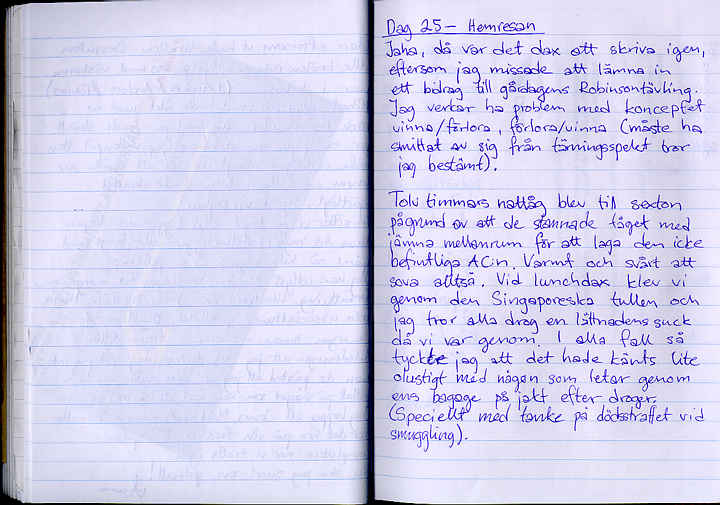 Dag 25 – Hemresan
Jaha, då var det dax att skriva igen,
eftersom jag missade att lämna in
ett bidrag till gårdagens Robinsontävling.
Jag verkar ha problem med konceptet
vinna/förlora, förlora/vinna (måste ha
smittat av sig från tärningsspelet tror
jag bestämt).
Tolv timmars nattåg blev till sexton
pågrund av att de stannade tåget med
jämna mellanrum för att laga den icke
befintliga ACin. Varmt och svårt att
sova alltså. Vid lunchdax klev vi
genom den Singaporeska tullen och
jag tror alla drog en lättnadens suck
då vi var genom. I alla fall så
tyckte jag att det hade känts lite
olustigt med någon som letar genom
ens bagage på jakt efter droger.
(Speciellt med tanke på dödsstraffet vid
smuggling).